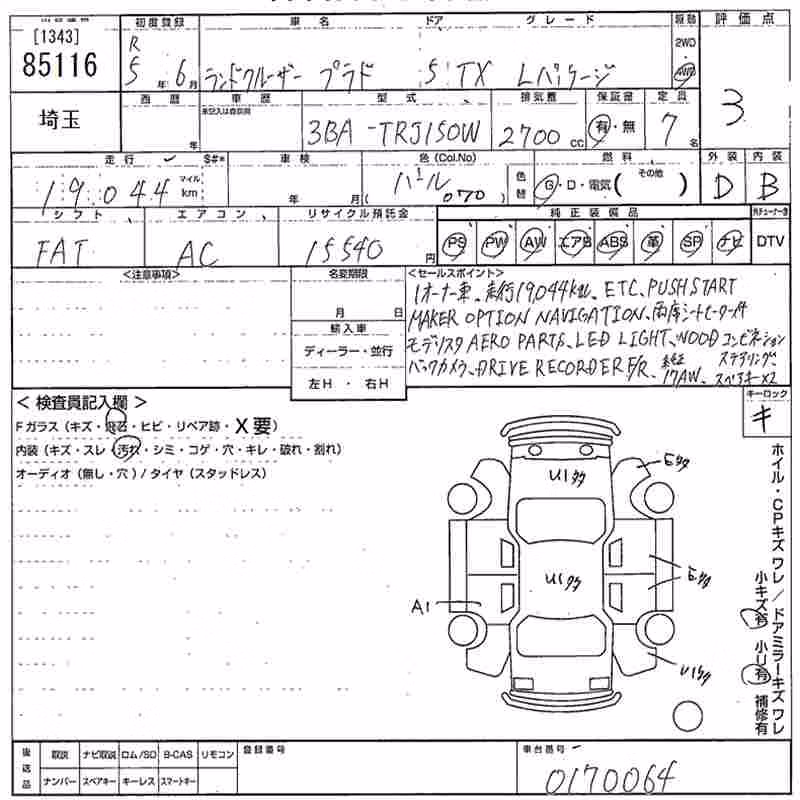 [1343]
85116
初度登録
R
5 年 6 月
車名 ドア グレード
ランドクルーザー プラド 5 TX Lパッケージ
駆動
2WD
4WD
評価点
3
埼玉
西暦
年
車歴
未記入は自家用
型式
3BA -TRJ150W
排気量
2700 cc
保証書
有・無
定員
7 名
走行
19044
マイル
km
S#*
車検
年 月
色 (Col.No)
パール
(070)
色替
燃料
G・D・電気 ( その他 )
外装
D
内装
B
シフト
FAT
エアコン
AC
リサイクル預託金
15540 円
純正装備品
PS PW AW エアB ABS 革 SP ナビ
DTV
<注意事項>
名変期限
月 日
輸入車
ディーラー・並行
左H ・ 右H
<セールスポイント>
1オーナー車、走行19,044km、ETC、PUSH START
MAKER OPTION NAVIGATION、両席シートヒーター付
モデリスタ AERO PARTS、LED LIGHT、WOODコンビネーション
ステアリング、
バックカメラ、DRIVE RECORDER F/R、純正
17AW、スペアキー×2
< 検査員記入欄 >
Fガラス (キズ・飛石・ヒビ・リペア跡・X要)
内装 (キズ・スレ・汚れ・シミ・コゲ・穴・キレ・破れ・割れ)
オーディオ (無し・穴) / タイヤ (スタッドレス)
キーロック
キ
U1タタ
Eタタ
U1タタ
Eタタ
A1
U1タタ
ホイル・CPキズワレ/ドアミラーキズワレ
小キズ有 小U有 補修有
後送品
取説 ナビ取説 ロム/SD B-CAS リモコン
ナンバー スペアキー キーレス スマートキー
登録番号
車台番号
0170064